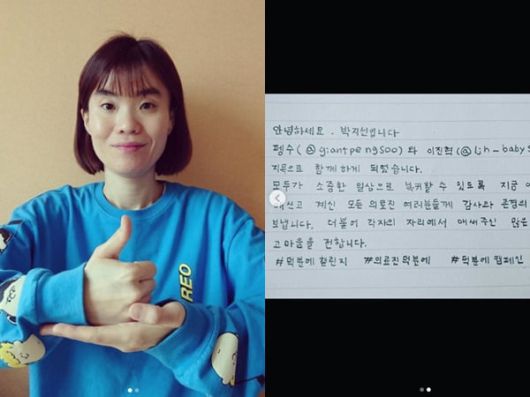 REO
안녕하세요. 박지선입니다
펭수(@giantpengsoo)와 이진혁(@ljh_babys
지목으로 함께하게 되었습니다.
모두가 소중한 일상으로 복귀할 수 있도록 지금
애쓰고 계신 모든 의료진 여러분들께 감사와 존경의
보냅니다. 더불어 각자의 자리에서 애써주신 많은
고마움을 전합니다.
#덕분에챌린지 #의료진덕분에 #덕분에캠페인